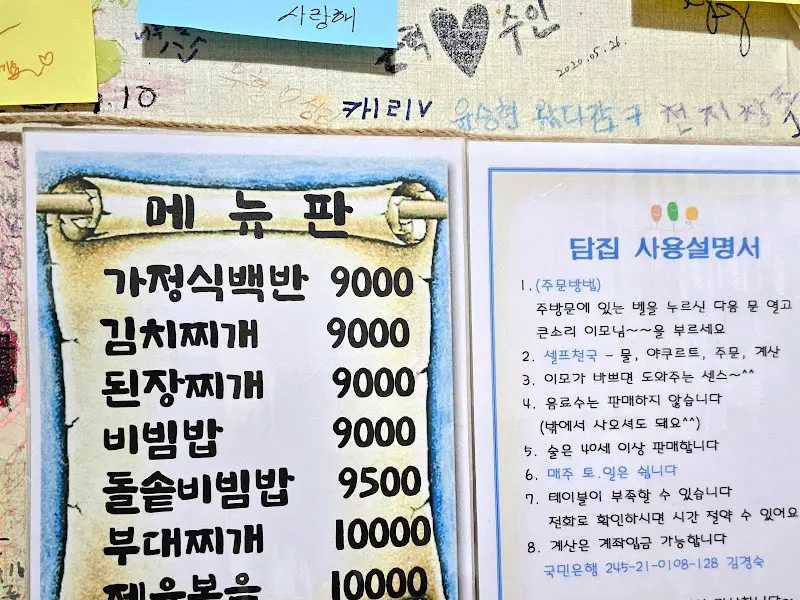 사랑해
수인
2020.05.26.
10
캐리V
메뉴판
가정식백반 9000
김치찌개 9000
된장찌개 9000
비빔밥 9000
돌솥비빔밥 9500
부대찌개 10000
제육볶음 10000
담집 사용설명서
1.(주문방법)
주방문에 있는 벨을 누르신 다음 문 열고
큰소리 이모님~~을 부르세요
2. 셀프천국 - 물, 야쿠르트, 주문, 계산
3. 이모가 바쁘면 도와주는 센스~^^
4. 음료수는 판매하지 않습니다
(밖에서 사오셔도 돼요^^)
5. 술은 40세 이상 판매합니다
6. 매주 토.일은 쉽니다
7. 테이블이 부족할 수 있습니다
전화로 확인하시면 시간 절약 할 수 있어요
8. 계산은 계좌입금 가능합니다
국민은행 245-21-0108-128 김경숙